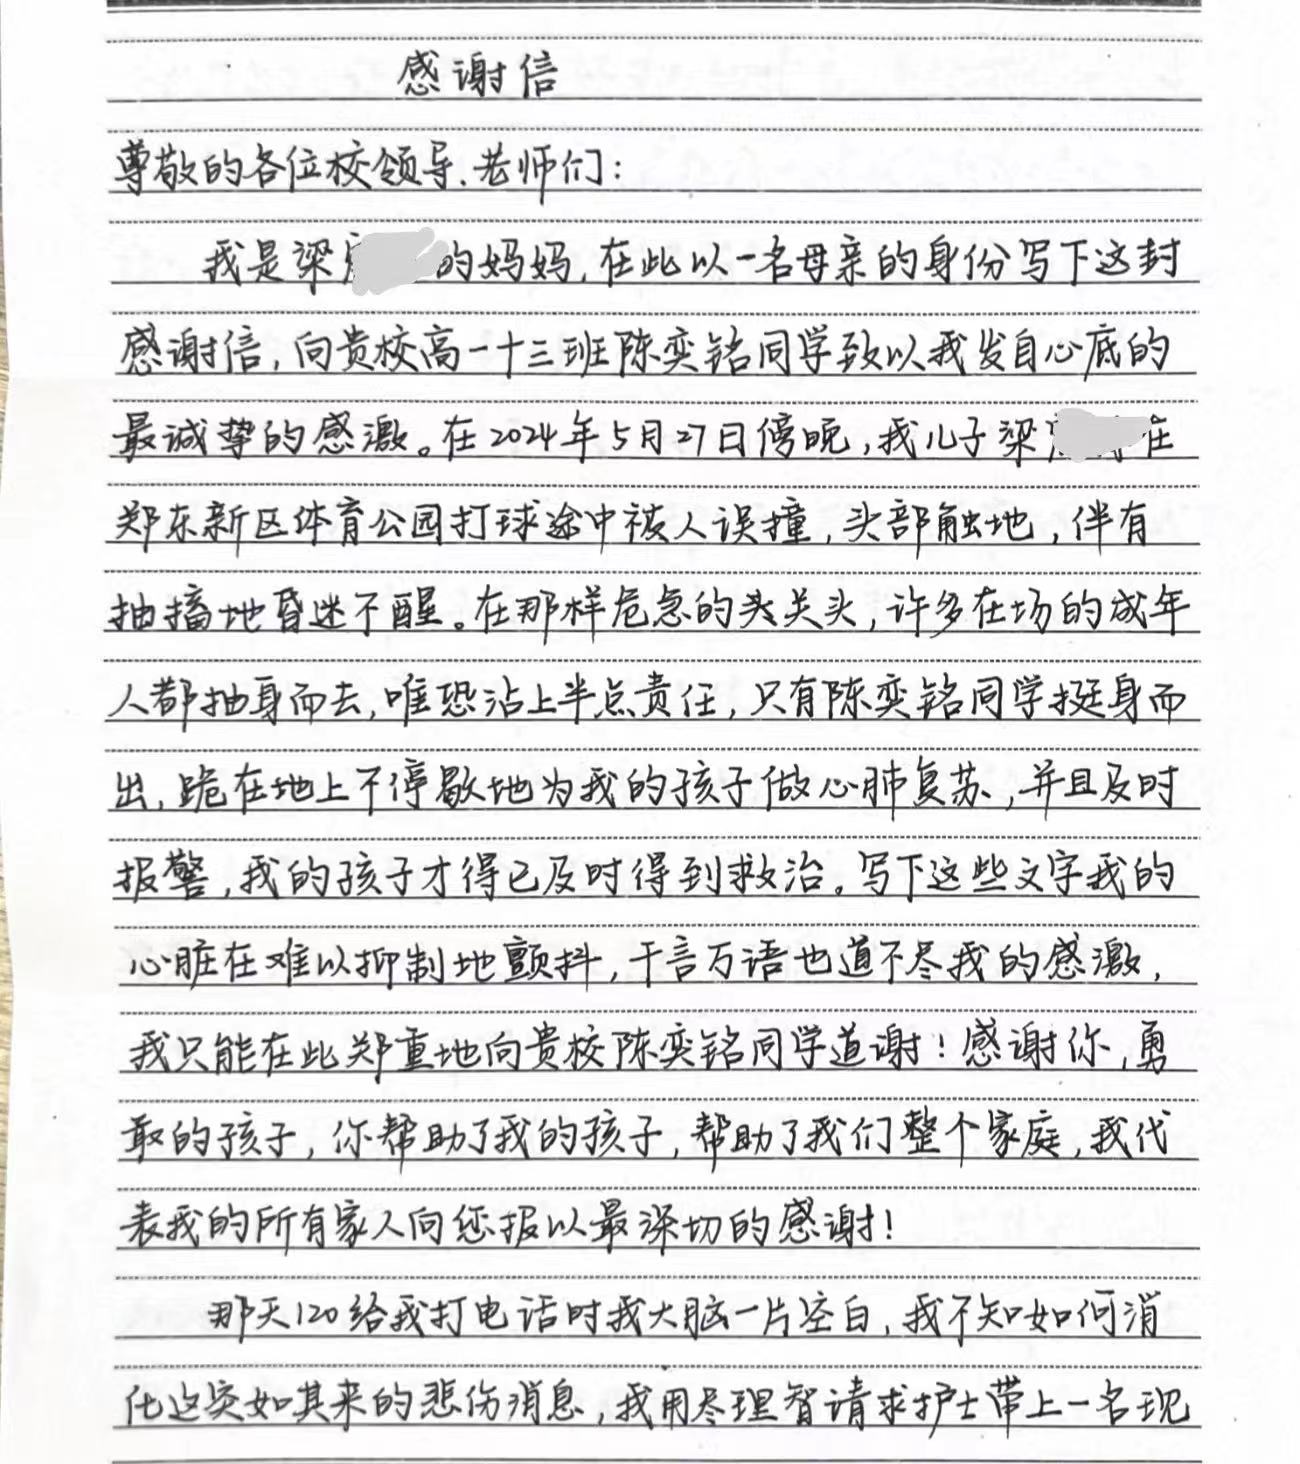 感谢信
尊敬的各位校领导、老师们：
我是梁的妈妈，在此以一名母亲的身份写下这封
感谢信，向贵校高一十三班陈奕铭同学致以我发自心底的
最诚挚的感激。在2024年5月27日傍晚，我儿子梁在
郑东新区体育公园打球途中被人误撞，头部触地，伴有
抽搐地昏迷不醒。在那样危急的关头，许多在场的成年
人都抽身而去，唯恐沾上半点责任，只有陈奕铭同学挺身而
出，跪在地上不停歇地为我的孩子做心肺复苏，并且及时
报警，我的孩子才得已及时得到救治。写下这些文字我的
心脏在难以抑制地颤抖，千言万语也道不尽我的感激，
我只能在此郑重地向贵校陈奕铭同学道谢！感谢你，勇
敢的孩子，你帮助了我的孩子，帮助了我们整个家庭，我代
表我的所有家人向您报以最深切的感谢！
那天120给我打电话时我大脑一片空白，我不知如何消
化这突如其来的悲伤消息，我用尽理智请求护士带上一名现